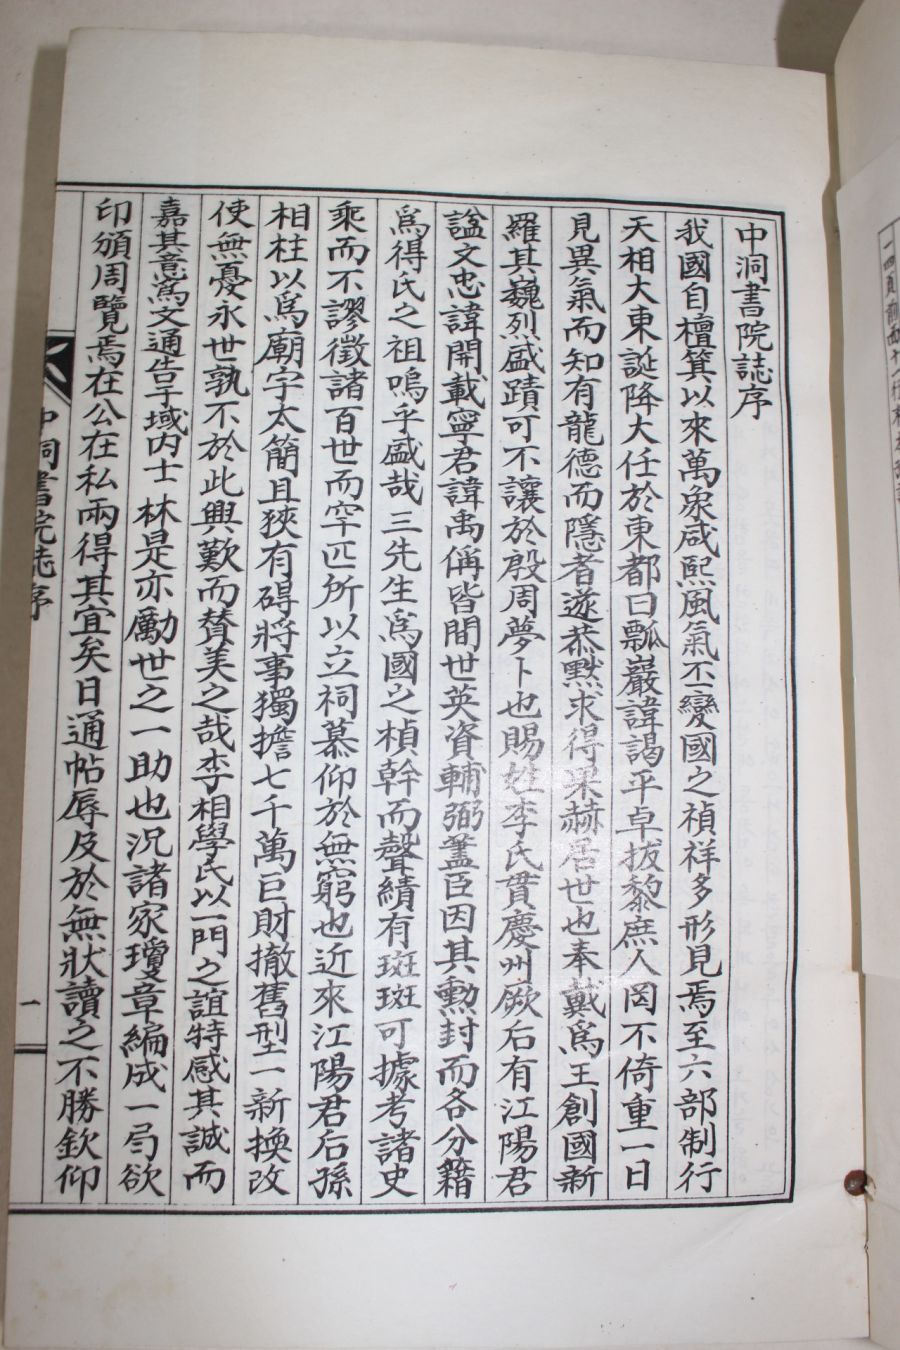 中洞書院誌序
我國自檀箕以來萬象咸熙風氣丕變國之禎祥多形見焉至六部制行
天相大東誕降大任於東都曰瓢巖諱謁平卓拔黎庶人罔不倚重一日
見異氣而知有龍德而隱者遂恭默求得果赫居世也奉戴爲王創國新
羅其巍烈盛蹟可不讓於殷周夢卜也賜姓李氏貫慶州厥后有江陽君
諡文忠諱開載寧君諱禹偁皆間世英資輔弼藎臣因其勳封而各分籍
爲得氏之祖嗚乎盛哉三先生爲國之楨幹而聲績有斑斑可據考諸史
乘而不謬徵諸百世而罕匹所以立祠慕仰於無窮也近來江陽君后孫
相柱以爲廟宇太簡且狹有碍將事獨擔七千萬巨財撤舊型一新換改
使無憂永世孰不於此興歎而賛美之哉李相學氏以一門之誼特感其誠而
嘉其意爲文通告于域内士林是亦勵世之一助也况諸家瓊章編成一局欲
印頒周覽焉在公在私兩得其宜矣日通帖辱及於無狀讀之不勝欽仰
中洞書院誌序
一